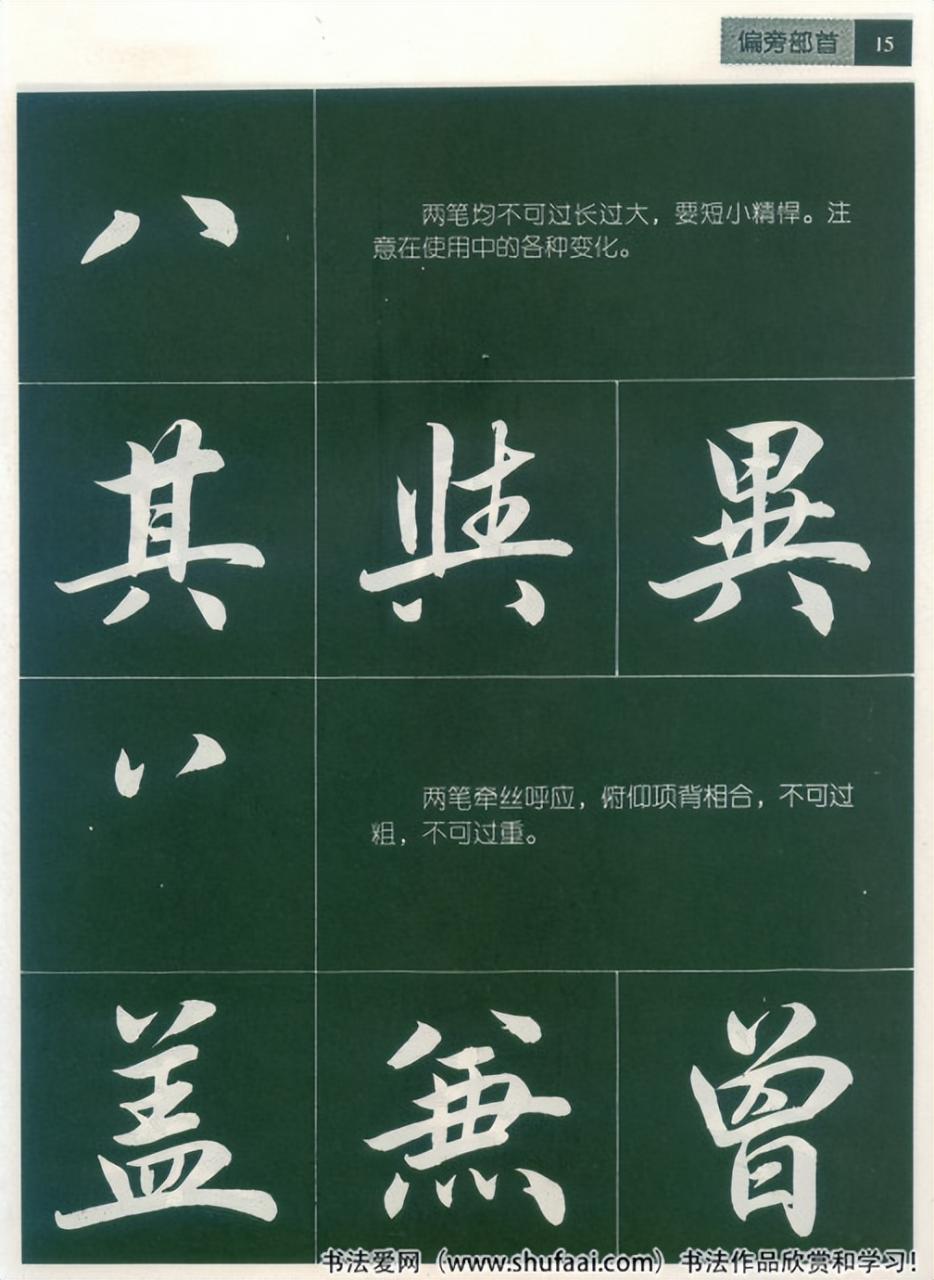 偏旁部首 15
八
两笔均不可过长过大，要短小精悍。注
意在使用中的各种变化。
其 異
丷
两笔牵丝呼应，俯仰项背相合，不可过
粗，不可过重。
盖 兼 曾
书法爱网（www.shufaai.com）书法作品欣赏和学习！